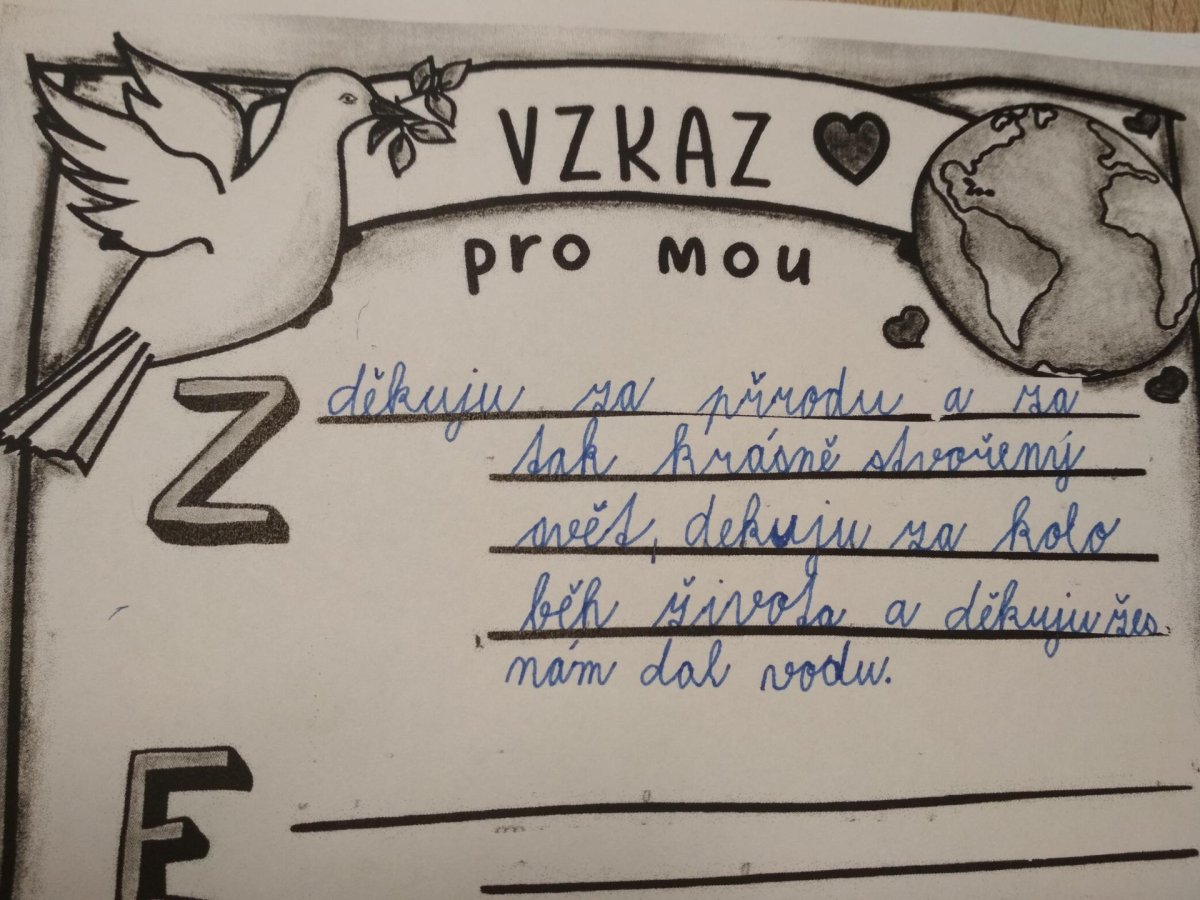 VZKAZ
pro mou
Z
děkuju za přírodu a za
tak krásně stvořený
svět, dekuju za kolo
běh života a děkuju žes
nám dal vodu.
E